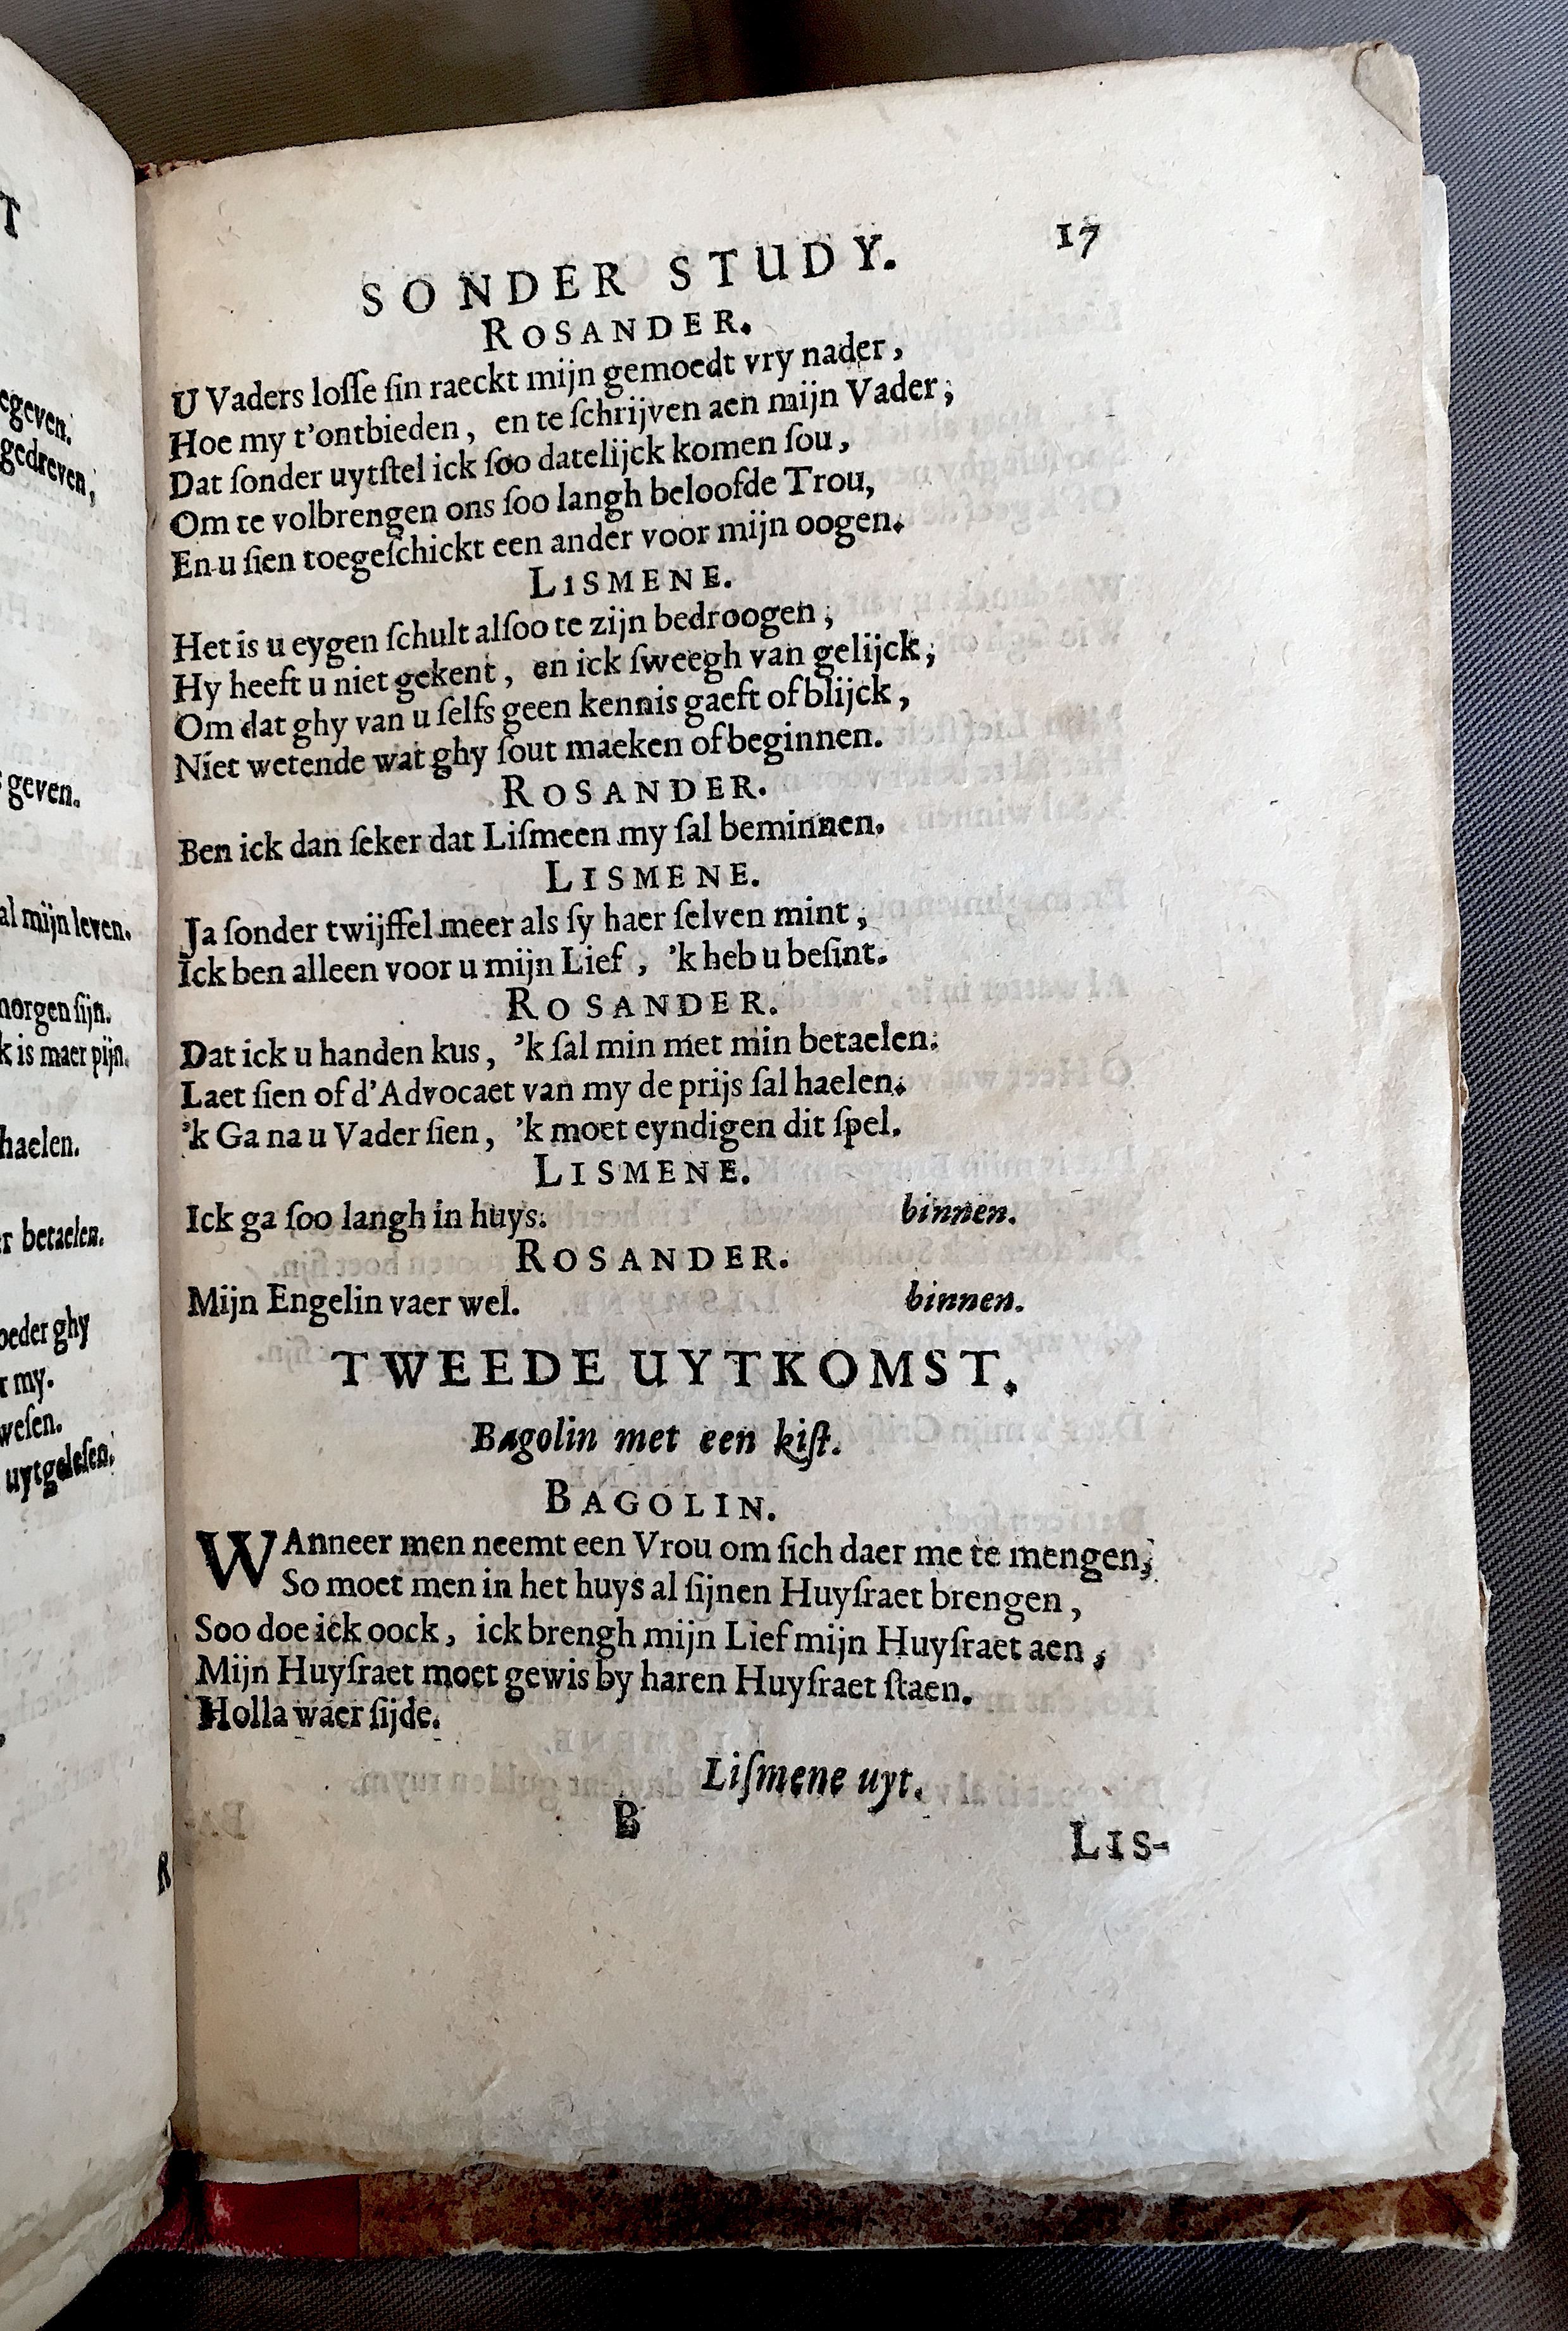 T
egeven.
gedreven,
geven.
al mijn leven.
morgen ſijn.
k is maer pijn.
haelen.
r betaelen.
oeder ghy
r my.
weſen.
uytgeleſen.
R
SONDER STUDY. 17
ROSANDER.
U Vaders loſſe ſin raeckt mijn gemoedt vry nader,
Hoe my t'ontbieden, en te ſchrijven aen mijn Vader;
Dat ſonder uytſtel ick ſoo datelijck komen ſou,
Om te volbrengen ons ſoo langh beloofde Trou,
En u ſien toegeſchickt een ander voor mijn oogen.
LISMENE.
Het is u eygen ſchult alſoo te zijn bedroogen;
Hy heeft u niet gekent, en ick ſweegh van gelijck;
Om dat ghy van u ſelfs geen kennis gaeft of blijck,
Niet wetende wat ghy ſout maeken of beginnen.
ROSANDER.
Ben ick dan ſeker dat Liſmeen my ſal beminnen.
LISMENE.
Ja ſonder twijffel meer als ſy haer ſelven mint,
Ick ben alleen voor u mijn Lief, 'k heb u beſint.
ROSANDER.
Dat ick u handen kus, 'k ſal min met min betaelen.
Laet ſien of d'Advocaet van my de prijs ſal haelen.
'k Ga na u Vader ſien, 'k moet eyndigen dit ſpel.
LISMENE.
Ick ga ſoo langh in huys. binnen.
ROSANDER.
Mijn Engelin vaer wel. binnen.
TWEEDE UYTKOMST.
Bagolin met een kiſt.
BAGOLIN.
WAnneer men neemt een Vrou om ſich daer me te mengen,
So moet men in het huys al ſijnen Huyſraet brengen,
Soo doe ick oock, ick brengh mijn Lief mijn Huyſraet aen,
Mijn Huyſraet moet gewis by haren Huyſraet ſtaen.
Holla waer ſijde.
Liſmene uyt.
B
LIS-